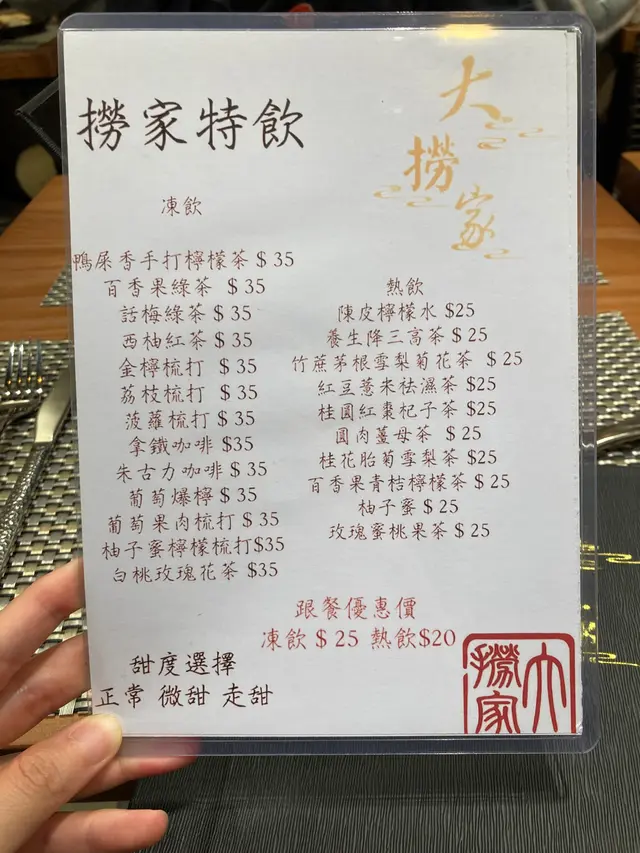 撈家特飲
大撈家
凍飲
鴨屎香手打檸檬茶 $ 35
百香果綠茶 $ 35
話梅綠茶 $ 35
西柚紅茶 $ 35
金檸梳打 $ 35
荔枝梳打 $ 35
菠蘿梳打 $ 35
拿鐵咖啡 $35
朱古力咖啡 $ 35
葡萄爆檸 $ 35
葡萄果肉梳打 $ 35
柚子蜜檸檬梳打$35
白桃玫瑰花茶 $35
熱飲
陳皮檸檬水 $25
養生降三高茶 $ 25
竹蔗茅根雪梨菊花茶 $ 25
紅豆薏米祛濕茶 $25
桂圓紅棗杞子茶 $25
圓肉薑母茶 $ 25
桂花胎菊雪梨茶 $25
百香果青桔檸檬茶 $ 25
柚子蜜 $ 25
玫瑰蜜桃果茶 $ 25
跟餐優惠價
凍飲 $ 25 熱飲$20
甜度選擇
正常 微甜 走甜
大撈家